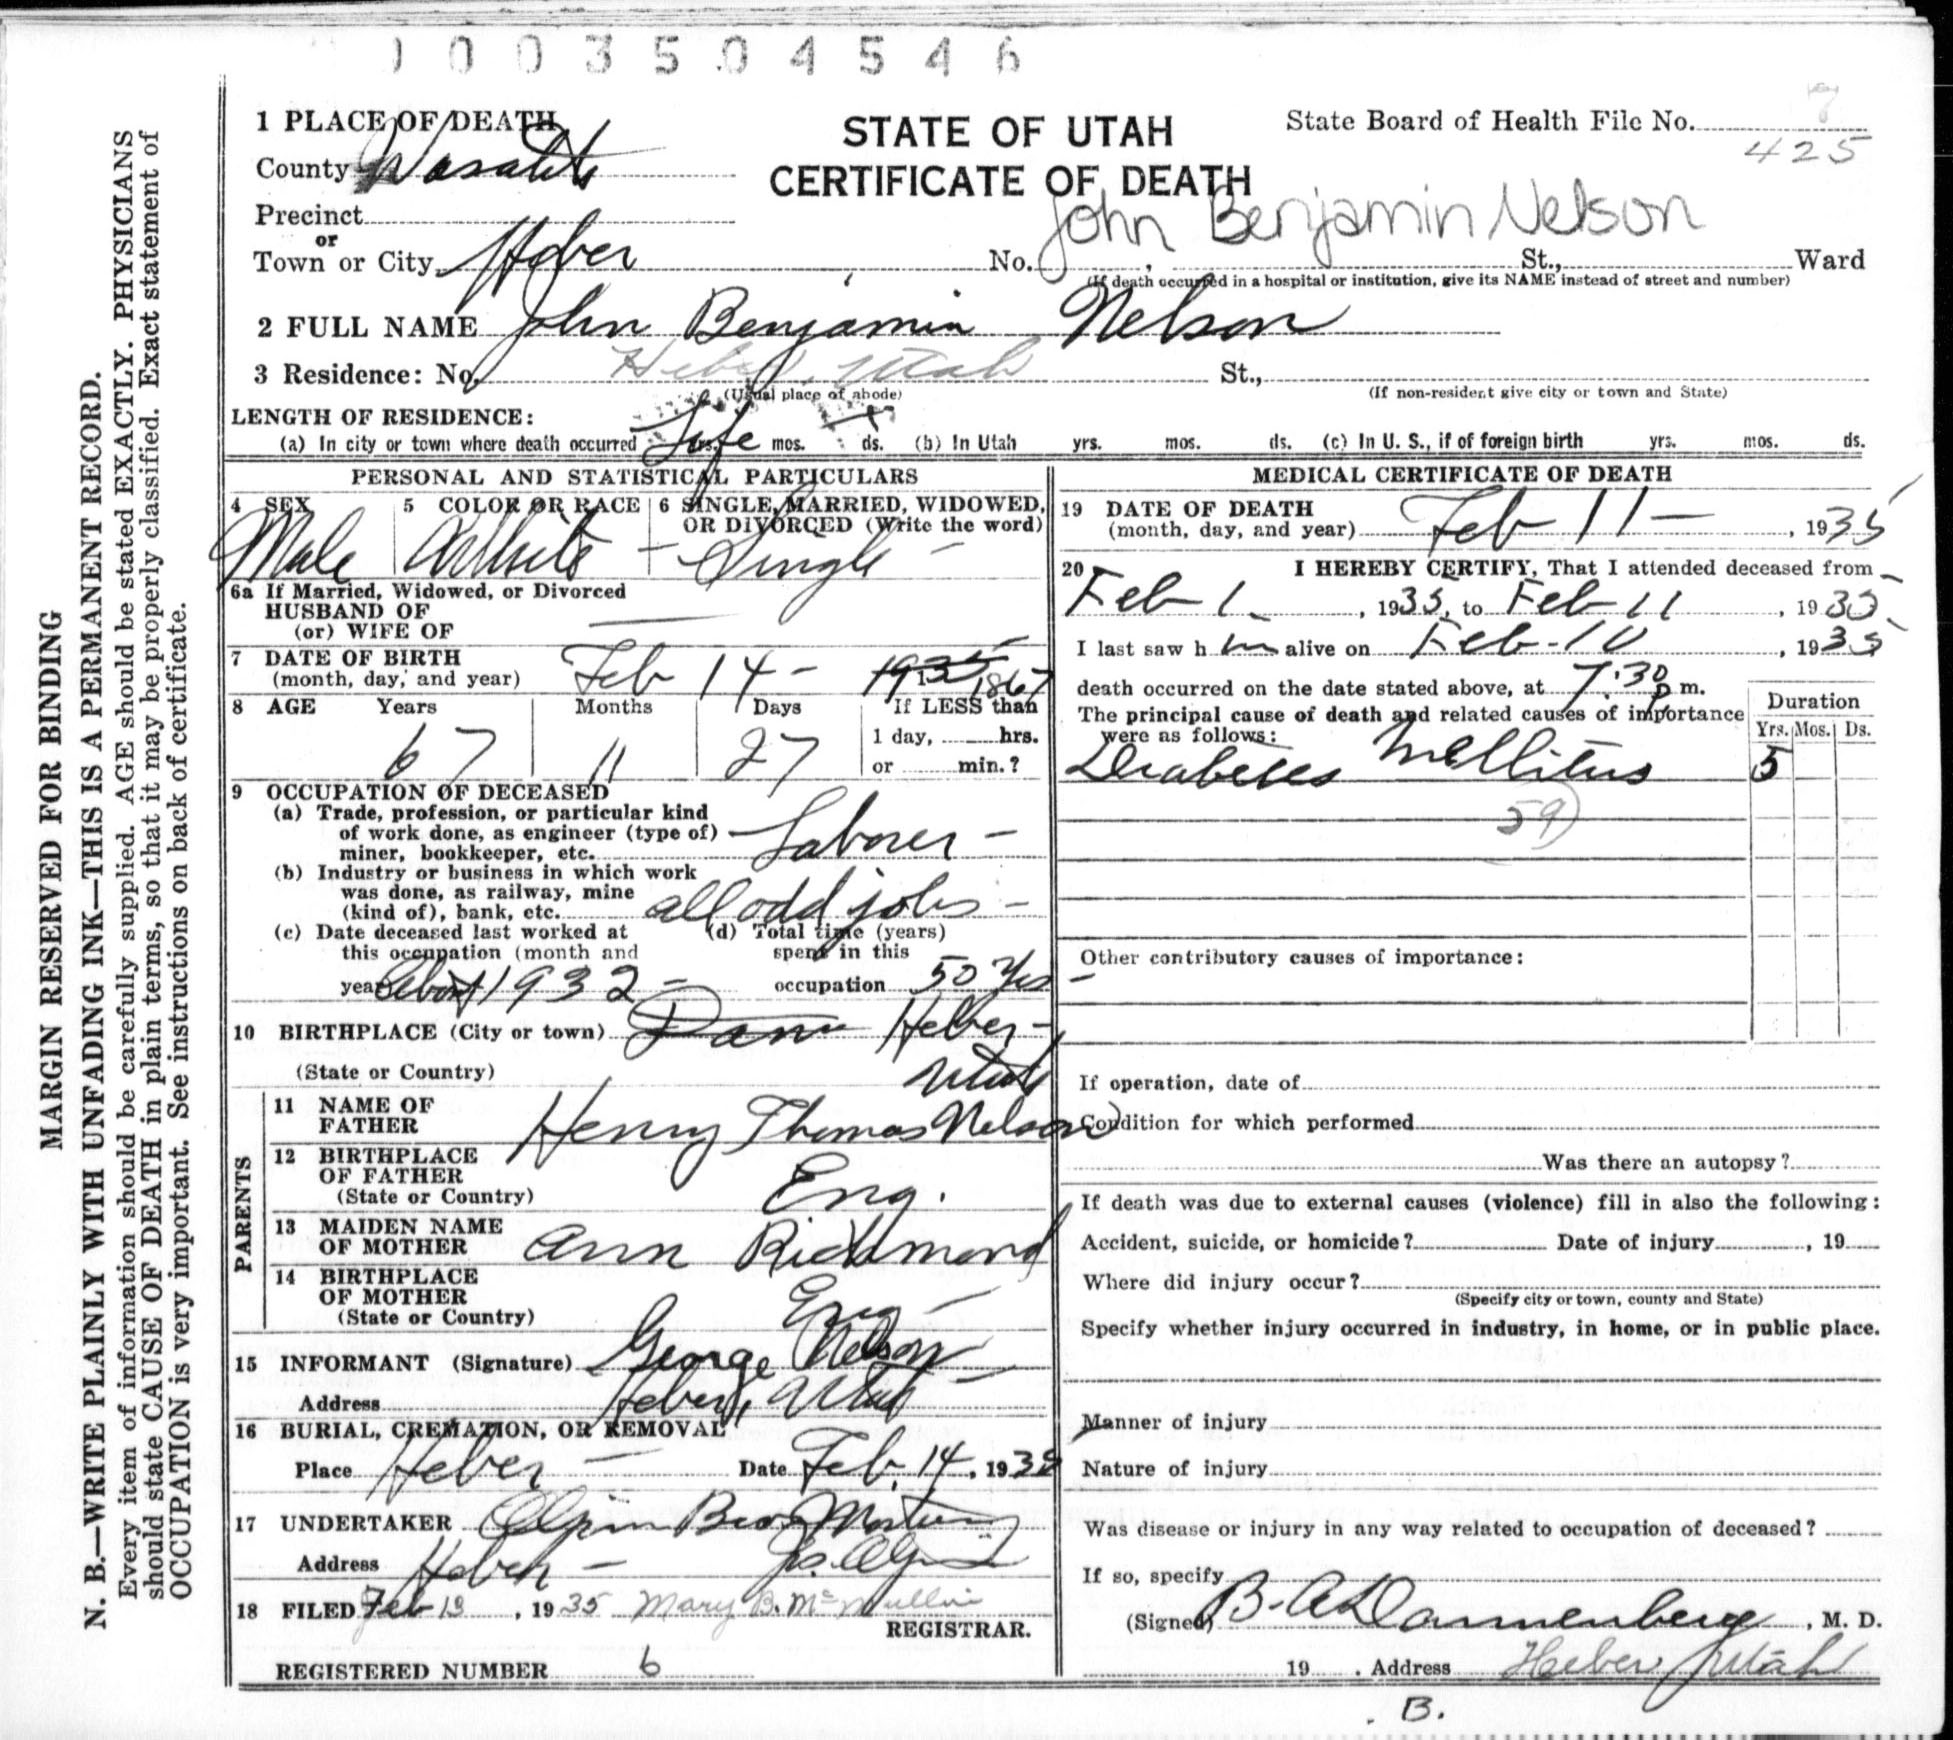 0 0 3 5 0 4 5 4 6
1 PLACE OF DEATH
STATE OF UTAH
CERTIFICATE OF DEATH
State Board of Health File No. 7
425
County Wasatch
Precinct
or
Town or City Heber No. St., Ward
John Benjamin Nelson
(If death occurred in a hospital or institution, give its NAME instead of street and number)
2 FULL NAME John Benjamin Nelson
3 Residence: No. Heber, Utah St.,
(Usual place of abode) (If non-resident give city or town and State)
LENGTH OF RESIDENCE:
(a) In city or town where death occurred Life yrs. mos. ds. (b) In Utah yrs. mos. ds. (c) In U. S., if of foreign birth yrs. mos. ds.
PERSONAL AND STATISTICAL PARTICULARS
4 SEX
Male
5 COLOR OR RACE
White
6 SINGLE, MARRIED, WIDOWED,
OR DIVORCED (Write the word)
Single
6a If Married, Widowed, or Divorced
HUSBAND OF
(or) WIFE OF
7 DATE OF BIRTH
(month, day, and year) Feb 14 - 1935 1867
8 AGE Years Months Days If LESS than
67 11 27 1 day, hrs.
or min.?
9 OCCUPATION OF DECEASED
(a) Trade, profession, or particular kind
of work done, as engineer (type of)
miner, bookkeeper, etc. Laborer -
(b) Industry or business in which work
was done, as railway, mine
(kind of), bank, etc. all odd jobs -
(c) Date deceased last worked at
this occupation (month and
year) About 1932 -
(d) Total time (years)
spent in this
occupation 50 Yrs -
10 BIRTHPLACE (City or town) Heber -
(State or Country) Utah
PARENTS
11 NAME OF
FATHER Henry Thomas Nelson
12 BIRTHPLACE
OF FATHER
(State or Country) Eng.
13 MAIDEN NAME
OF MOTHER Ann Richmond
14 BIRTHPLACE
OF MOTHER
(State or Country) Eng -
15 INFORMANT (Signature) George Nelson
Address Heber, Utah -
16 BURIAL, CREMATION, OR REMOVAL
Place Heber - Date Feb. 14, 1935
17 UNDERTAKER Olpin Bros Mortuary
Address Heber - Olpin
18 FILED Feb 13, 1935 Mary B. McMullin
REGISTRAR.
REGISTERED NUMBER 6
MEDICAL CERTIFICATE OF DEATH
19 DATE OF DEATH
(month, day, and year) Feb 11 -, 1935
20 I HEREBY CERTIFY, That I attended deceased from
Feb 1, 1935, to Feb 11, 1935
I last saw him alive on Feb - 10, 1935
death occurred on the date stated above, at 7:30 p m.
The principal cause of death and related causes of importance
were as follows:
Duration
Yrs. Mos. Ds.
Diabetes Mellitus 5
59)
Other contributory causes of importance:
If operation, date of
Condition for which performed
Was there an autopsy?
If death was due to external causes (violence) fill in also the following:
Accident, suicide, or homicide? Date of injury, 19
Where did injury occur?
(Specify city or town, county and State)
Specify whether injury occurred in industry, in home, or in public place.
Manner of injury
Nature of injury
Was disease or injury in any way related to occupation of deceased?
If so, specify
(Signed) B. A. Dannenberg, M. D.
19 . Address Heber Utah
B.
MARGIN RESERVED FOR BINDING
N. B.—WRITE PLAINLY WITH UNFADING INK—THIS IS A PERMANENT RECORD.
Every item of information should be carefully supplied. AGE should be stated EXACTLY. PHYSICIANS
should state CAUSE OF DEATH in plain terms, so that it may be properly classified. Exact statement of
OCCUPATION is very important. See instructions on back of certificate.